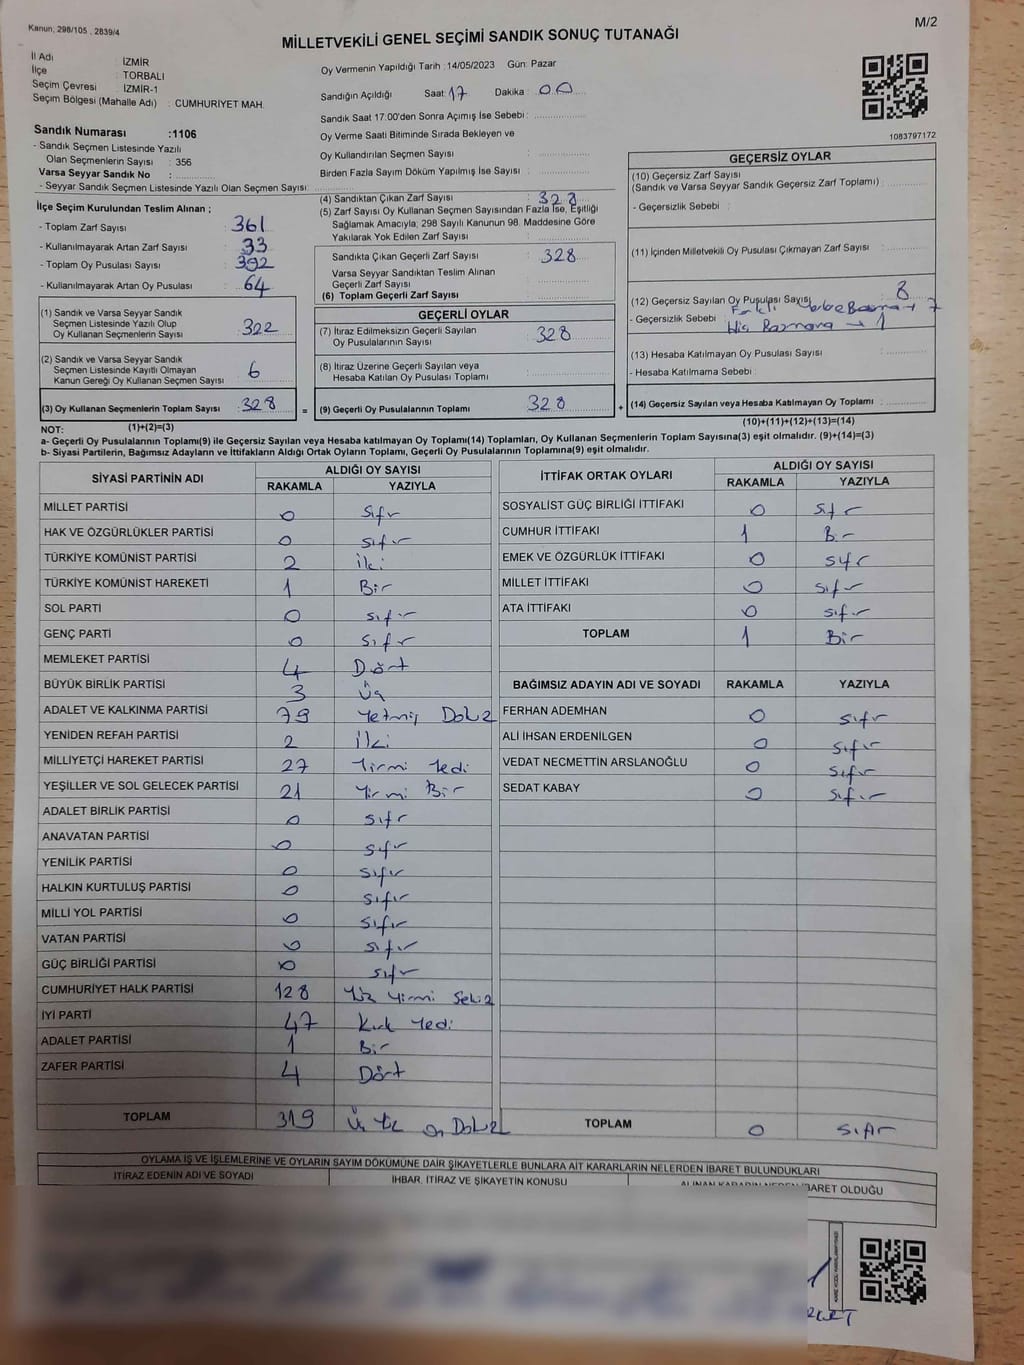 Kanun, 298/105 , 2839/4
M/2
MİLLETVEKİLİ GENEL SEÇİMİ SANDIK SONUÇ TUTANAĞI
İl Adı : İZMİR
İlçe : TORBALI
Seçim Çevresi : İZMİR-1
Seçim Bölgesi (Mahalle Adı) : CUMHURİYET MAH.
Sandık Numarası :1106
- Sandık Seçmen Listesinde Yazılı
Olan Seçmenlerin Sayısı : 356
Varsa Seyyar Sandık No :
- Seyyar Sandık Seçmen Listesinde Yazılı Olan Seçmen Sayısı:
Oy Vermenin Yapıldığı Tarih :14/05/2023 Gün: Pazar
Sandığın Açıldığı Saat: 17 Dakika : 00
Sandık Saat 17.00'den Sonra Açılmış İse Sebebi :
Oy Verme Saati Bitiminde Sırada Bekleyen ve
Oy Kullandırılan Seçmen Sayısı :
Birden Fazla Sayım Döküm Yapılmış İse Sayısı :
1083797172
İlçe Seçim Kurulundan Teslim Alınan ;
- Toplam Zarf Sayısı : 361
- Kullanılmayarak Artan Zarf Sayısı : 33
- Toplam Oy Pusulası Sayısı : 392
- Kullanılmayarak Artan Oy Pusulası : 64
(1) Sandık ve Varsa Seyyar Sandık
Seçmen Listesinde Yazılı Olup
Oy Kullanan Seçmenlerin Sayısı : 322
(2) Sandık ve Varsa Seyyar Sandık
Seçmen Listesinde Kayıtlı Olmayan
Kanun Gereği Oy Kullanan Seçmen Sayısı : 6
(3) Oy Kullanan Seçmenlerin Toplam Sayısı : 328 =
(4) Sandıktan Çıkan Zarf Sayısı : 328
(5) Zarf Sayısı Oy Kullanan Seçmen Sayısından Fazla İse, Eşitliği
Sağlamak Amacıyla; 298 Sayılı Kanunun 98. Maddesine Göre
Yakılarak Yok Edilen Zarf Sayısı :
Sandıkta Çıkan Geçerli Zarf Sayısı : 328
Varsa Seyyar Sandıktan Teslim Alınan
Geçerli Zarf Sayısı :
(6) Toplam Geçerli Zarf Sayısı :
GEÇERLİ OYLAR
(7) İtiraz Edilmeksizin Geçerli Sayılan
Oy Pusulalarının Sayısı : 328
(8) İtiraz Üzerine Geçerli Sayılan veya
Hesaba Katılan Oy Pusulası Toplamı :
(9) Geçerli Oy Pusulalarının Toplamı : 328 +
GEÇERSİZ OYLAR
(10) Geçersiz Zarf Sayısı
(Sandık ve Varsa Seyyar Sandık Geçersiz Zarf Toplamı) :
- Geçersizlik Sebebi :
(11) İçinden Milletvekili Oy Pusulası Çıkmayan Zarf Sayısı :
(12) Geçersiz Sayılan Oy Pusulası Sayısı 8
- Geçersizlik Sebebi : Farklı Basma → 7
Hiç Basmama → 1
(13) Hesaba Katılmayan Oy Pusulası Sayısı :
- Hesaba Katılmama Sebebi :
(14) Geçersiz Sayılan veya Hesaba Katılmayan Oy Toplamı :
NOT: (1)+(2)=(3) (10)+(11)+(12)+(13)=(14)
a- Geçerli Oy Pusulalarının Toplamı(9) ile Geçersiz Sayılan veya Hesaba katılmayan Oy Toplamı(14) Toplamları, Oy Kullanan Seçmenlerin Toplam Sayısına(3) eşit olmalıdır. (9)+(14)=(3)
b- Siyasi Partilerin, Bağımsız Adayların ve İttifakların Aldığı Ortak Oyların Toplamı, Geçerli Oy Pusulalarının Toplamına(9) eşit olmalıdır.
SİYASİ PARTİNİN ADI ALDIĞI OY SAYISI
RAKAMLA YAZIYLA
MİLLET PARTİSİ 0 Sıfır
HAK VE ÖZGÜRLÜKLER PARTİSİ 0 Sıfır
TÜRKİYE KOMÜNİST PARTİSİ 2 İki
TÜRKİYE KOMÜNİST HAREKETİ 1 Bir
SOL PARTİ 0 Sıfır
GENÇ PARTİ 0 Sıfır
MEMLEKET PARTİSİ 4 Dört
BÜYÜK BİRLİK PARTİSİ 3 Üç
ADALET VE KALKINMA PARTİSİ 79 Yetmiş Dokuz
YENİDEN REFAH PARTİSİ 2 İki
MİLLİYETÇİ HAREKET PARTİSİ 27 Yirmi Yedi
YEŞİLLER VE SOL GELECEK PARTİSİ 21 Yirmi Bir
ADALET BİRLİK PARTİSİ 0 Sıfır
ANAVATAN PARTİSİ 0 Sıfır
YENİLİK PARTİSİ 0 Sıfır
HALKIN KURTULUŞ PARTİSİ 0 Sıfır
MİLLİ YOL PARTİSİ 0 Sıfır
VATAN PARTİSİ 0 Sıfır
GÜÇ BİRLİĞİ PARTİSİ 0 Sıfır
CUMHURİYET HALK PARTİSİ 128 Yüz Yirmi Sekiz
İYİ PARTİ 47 Kırk Yedi
ADALET PARTİSİ 1 Bir
ZAFER PARTİSİ 4 Dört
TOPLAM 319 Üç Yüz On Dokuz
İTTİFAK ORTAK OYLARI ALDIĞI OY SAYISI
RAKAMLA YAZIYLA
SOSYALİST GÜÇ BİRLİĞİ İTTİFAKI 0 Sıfır
CUMHUR İTTİFAKI 1 Bir
EMEK VE ÖZGÜRLÜK İTTİFAKI 0 Sıfır
MİLLET İTTİFAKI 0 Sıfır
ATA İTTİFAKI 0 Sıfır
TOPLAM 1 Bir
BAĞIMSIZ ADAYIN ADI VE SOYADI RAKAMLA YAZIYLA
FERHAN ADEMHAN 0 Sıfır
ALİ İHSAN ERDENİLGEN 0 Sıfır
VEDAT NECMETTİN ARSLANOĞLU 0 Sıfır
SEDAT KABAY 0 Sıfır
TOPLAM 0 Sıfır
OYLAMA İŞ VE İŞLEMLERİNE VE OYLARIN SAYIM DÖKÜMÜNE DAİR ŞİKAYETLERLE BUNLARA AİT KARARLARIN NELERDEN İBARET BULUNDUKLARI
İTİRAZ EDENİN ADI VE SOYADI İHBAR, İTİRAZ VE ŞİKAYETİN KONUSU ALINAN KARARIN NEDEN İBARET OLDUĞU